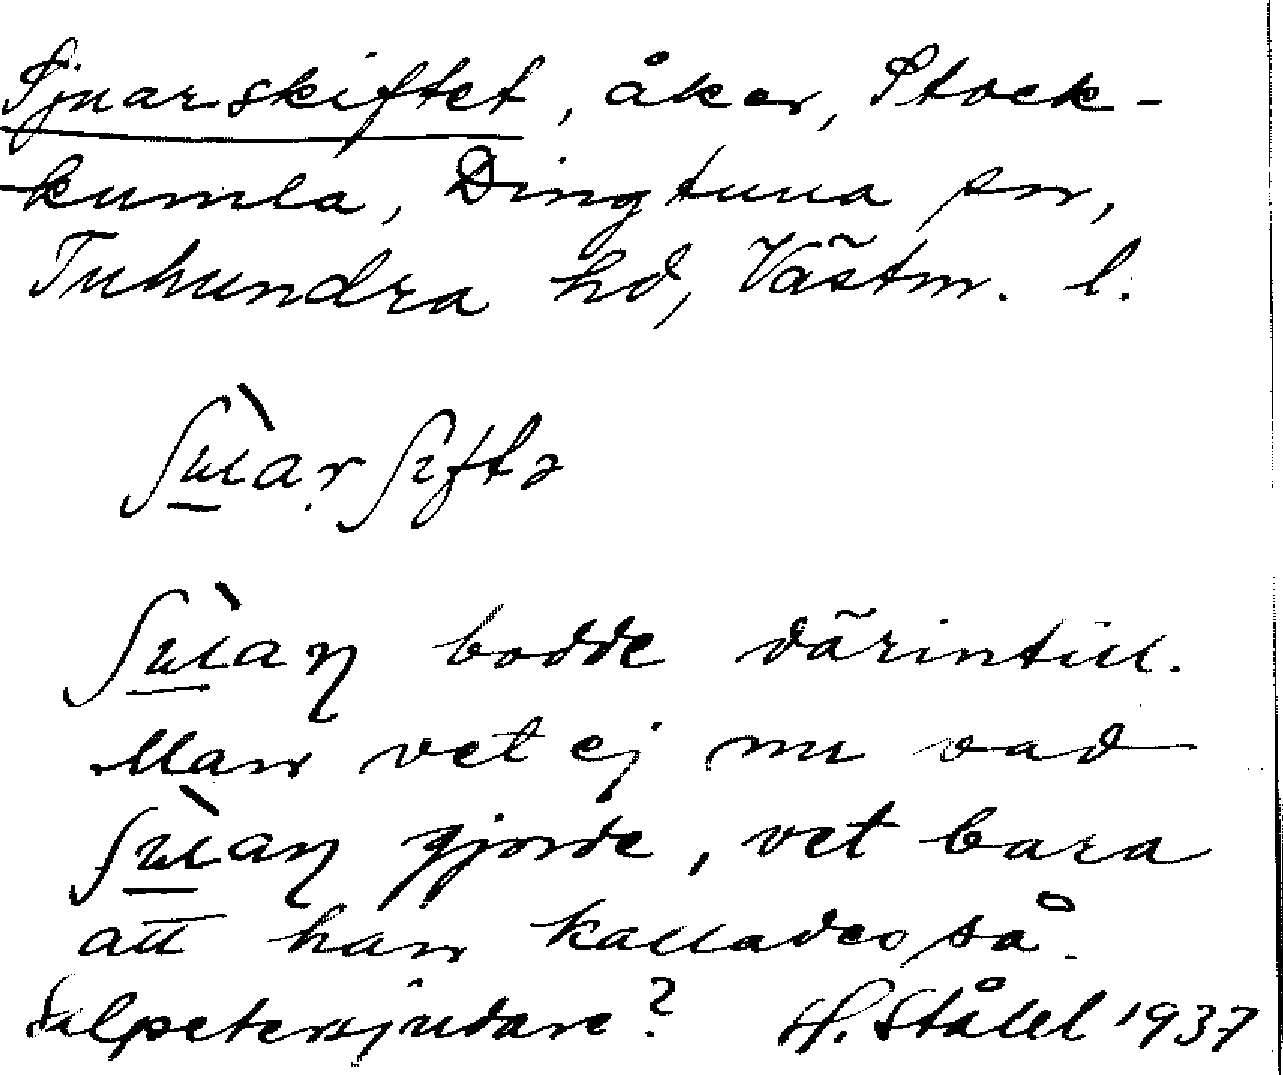 Sjuarskiftet, åker, Stock-
kumla, Dingtuna sn,
Tuhundra hd, Västm. l.
ʃɯ̀aṛʃɪftə
ʃɯ̀aɳ bodde därintill.
Man vet ej nu vad
ʃɯ̀aɳ gjorde, vet bara
att han kallades så.
Salpetersjudare? H. Ståhl 1937